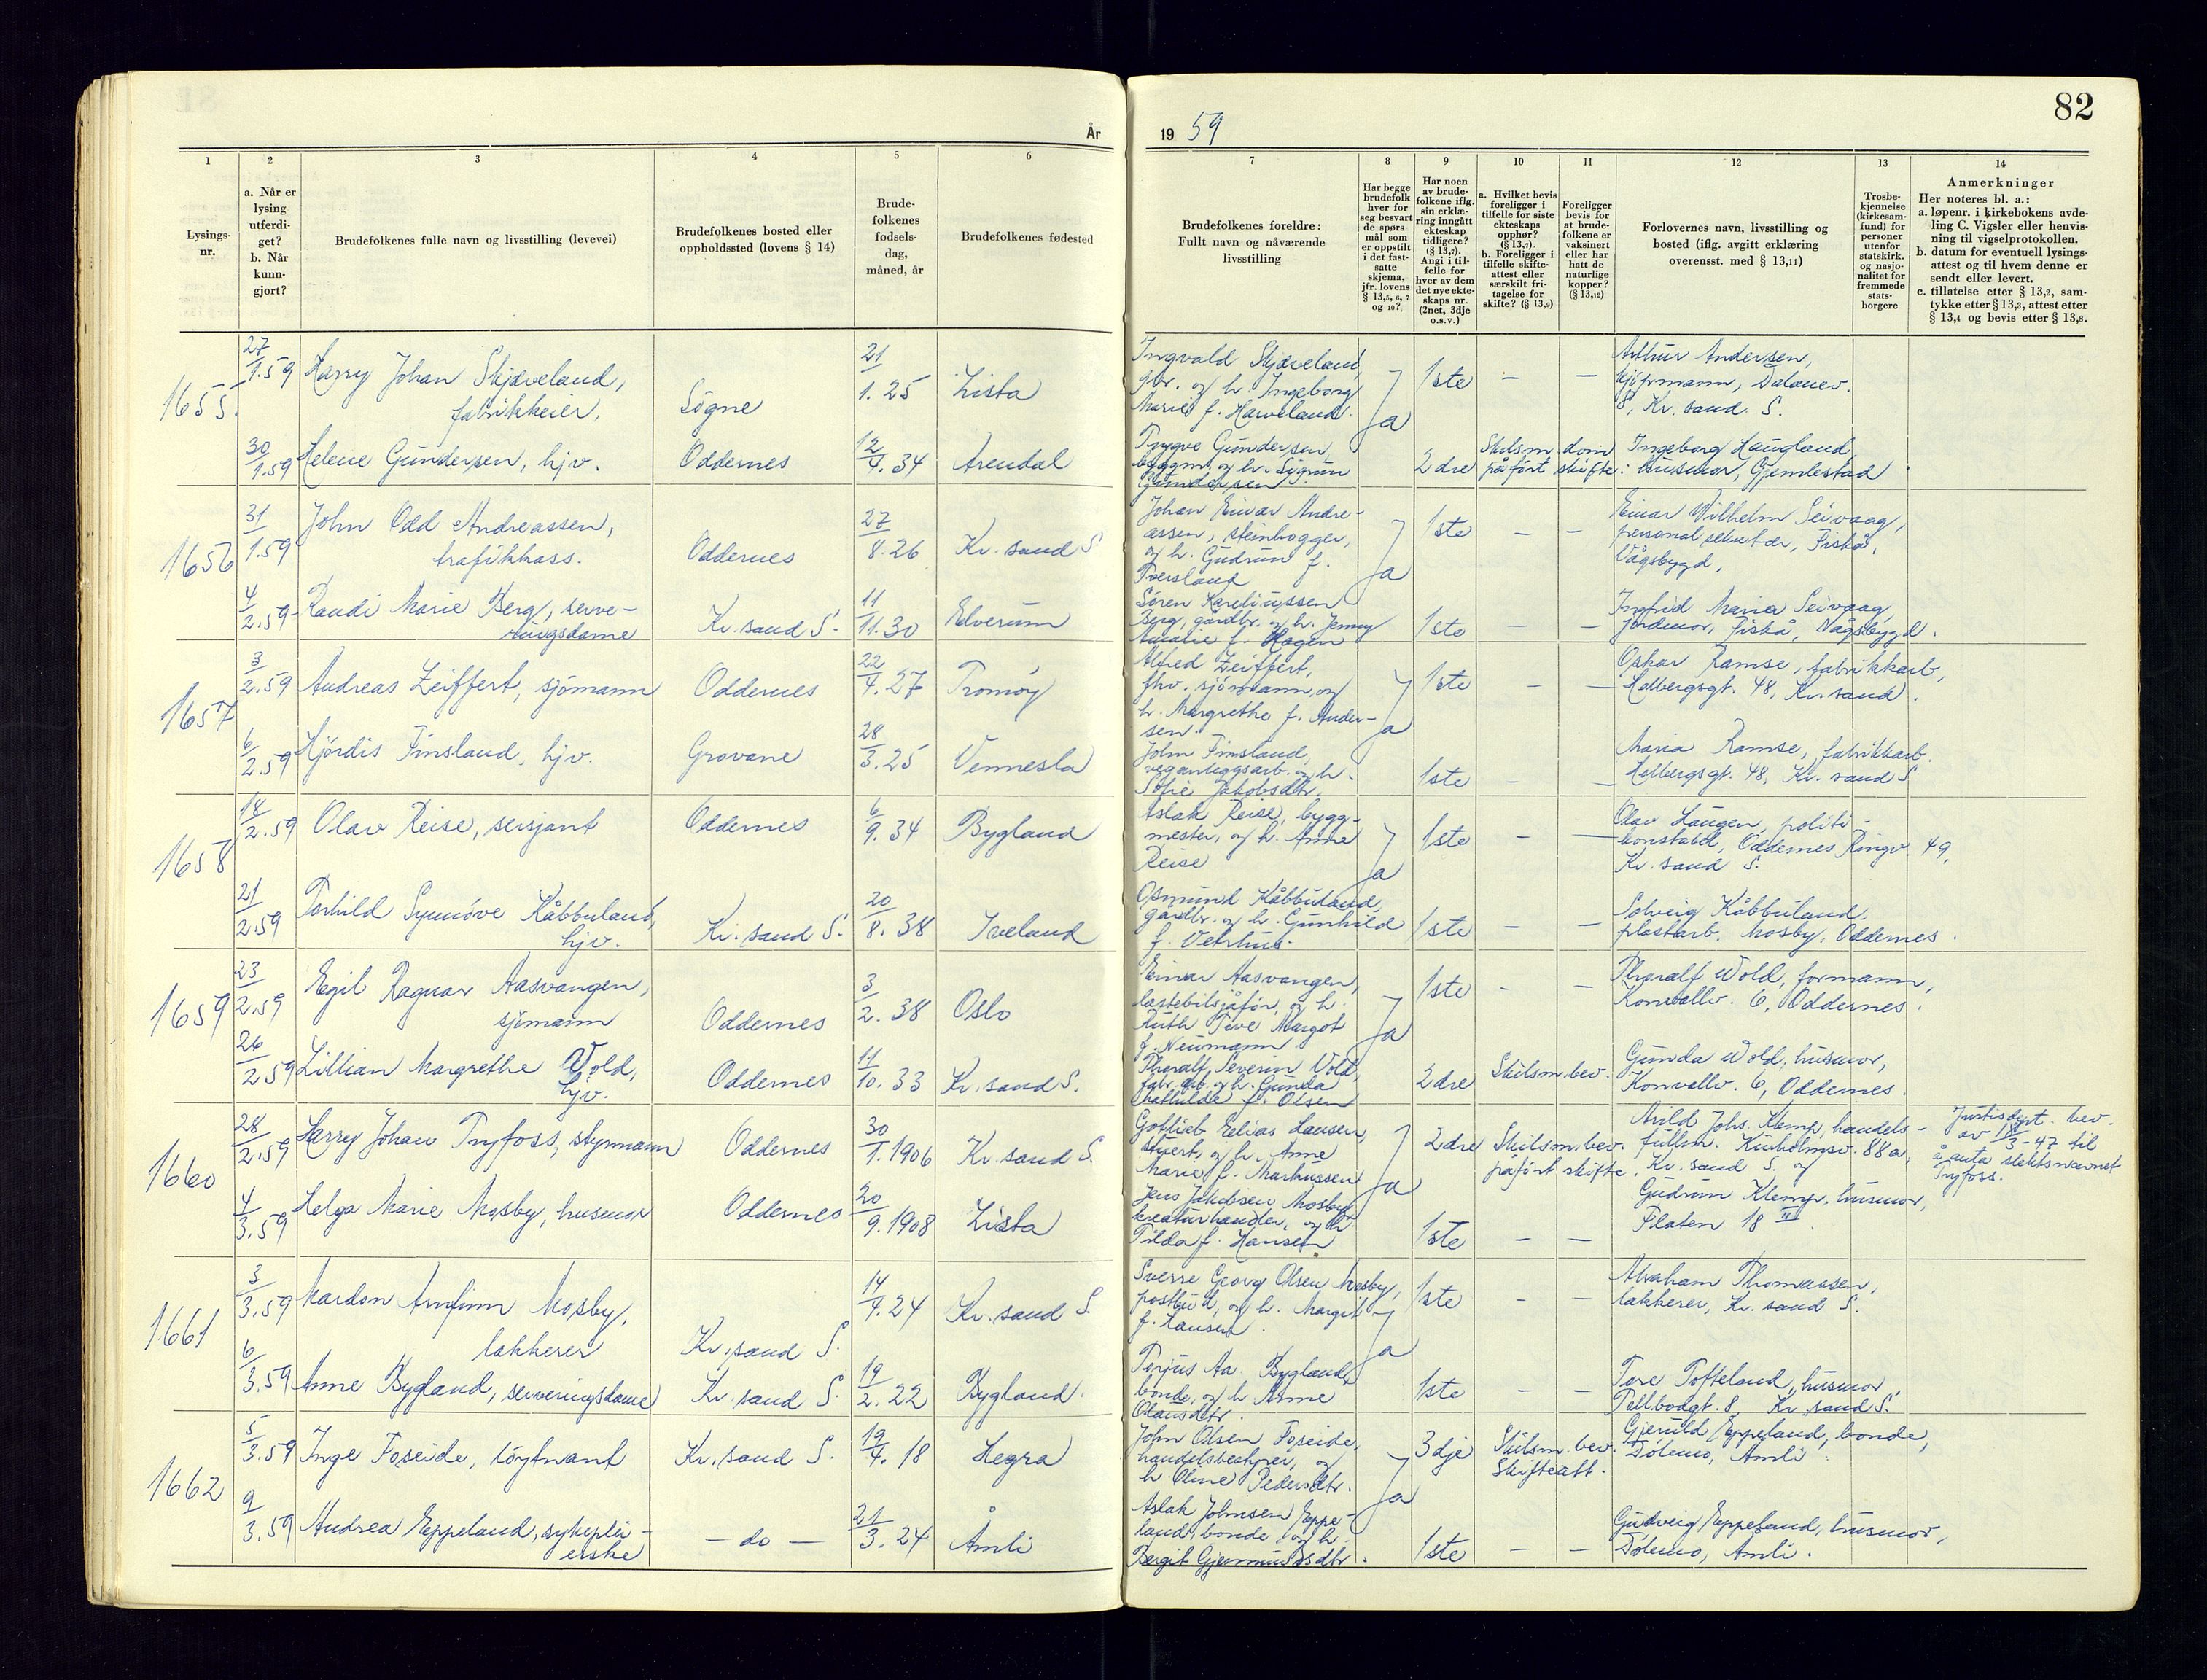 82
År
19 59
1
2
3
4
5
6
7
8
9
10
11
12
13
14
Lysings-
nr.
a. Når er
lysing
utferdi-
get?
b. Når
kunn-
gjort?
Brudefolkenes fulle navn og livsstilling (levevei)
Brudefolkenes bosted eller
oppholdssted (lovens § 14)
Brude-
folkenes
fødsels-
dag,
måned, år
Brudefolkenes fødested
Brudefolkenes foreldre:
Fullt navn og nåværende
livsstilling
Har begge
brudefolk
hver for
seg besvart
de spørs-
mål som
er oppstilt
i det fast-
satte
skjema,
jfr. lovens
§ 13,5, 6, 7
og 10?
Har noen
av brude-
folkene iflg.
sin erklæ-
ring inngått
ekteskap
tidligere?
(§ 13,7).
Angi i til-
felle for
hver av dem
det nye ekte-
skaps nr.
(2net, 3dje
o.s.v.)
a. Hvilket bevis
foreligger i
tilfelle for siste
ekteskaps
opphør?
(§ 13,7).
b. Foreligger i
tilfelle skifte-
attest eller
særskilt fri-
tagelse for
skifte? (§ 13,9)
Foreligger
bevis for
at brude-
folkene er
vaksinert
eller har
hatt de
naturlige
kopper?
(§ 13,12)
Forlovernes navn, livsstilling og
bosted (iflg. avgitt erklæring
overensst. med § 13,11)
Trosbe-
kjennelse
(kirkesam-
fund) for
personer
utenfor
statskirk.
og nasjo-
nalitet for
fremmede
stats-
borgere
Anmerkninger
Her noteres bl. a.:
a. løpenr. i kirkebokens avde-
ling C. Vigsler eller henvis-
ning til vigselprotokollen.
b. datum for eventuell lysings-
attest og til hvem denne er
sendt eller levert.
c. tillatelse etter § 13,2, sam-
tykke etter § 13,3, attest etter
§ 13,4 og bevis etter § 13,8.
1655.
27/1.59 Harry Johan Skjæveland,
fabrikkeier, Søgne 21/1.25 Lista
Ingvald Skjæveland,
gbr. og h. Ingeborg
Marie f. Haveland.
Ja 1ste — —
Arthur Andersen,
kjøpmann, Dalanev.
8, Kr. sand. S.
30/1.59 Helene Gundersen, hjv. Oddernes 12/4.34 Arendal
Trygve Gundersen,
byggm. og h. Sigrun
Gundersen.
2dre Skilsm. dom
påført skifte:
Ingeborg Haugland
husmor, Gjemlestad
1656
31/1.59 John Odd Andreassen,
trafikkass. Oddernes 27/8.26 Kr. sand S
Johan Einar Andre-
assen, steinhogger,
og h. Gudrun f.
Tversland
Ja 1ste — —
Einar Wilhelm Seivaag,
personalsekretær, Fiskå,
Vågsbygd,
4/2.59 Randi Marie Berg, serve-
ringsdame Kr. sand S. 11/11.30 Elverum
Søren Kareliussen
Berg, gårdbr. og h. Jenny
Amalie f. Hagen
1ste — —
Ingfrid Maria Seivaag,
jordmor, Fiskå, Vågsbygd.
1657
3/2.59 Andreas Zeiffert, sjømann Oddernes 22/4.27 Tromøy
Alfred Zeiffert,
fhv. sjømann, og
h. Margrethe f. Ander-
sen.
Ja 1ste — —
Oskar Ramse, fabrikkarb,
Holbergsgt. 48, Kr. sand.
6/2.59 Hjørdis Finsland, hjv. Grovane 28/3.25 Vennesla
John Finsland,
veganleggsarb. og h.
Sofie Jakobsdtr.
1ste — —
Maria Ramse, fabrikkarb.
Holbergsgt. 48, Kr. sand S
1658
18/2.59 Olav Reise, sersjant Oddernes 6/9.34 Bygland
Aslak Reise, bygg-
mester, og h. Anne
Reise
Ja 1ste — —
Olav Haugen, politi-
konstabel, Oddernes Ringv. 49,
Kr. sand S.
21/2.59 Torhild Synnøve Kåbbuland,
hjv. Kr. sand S. 20/8.38 Iveland
Osmund Kåbbuland,
gårdbr. og h. Gunhild
f. Vetrhus.
1ste — —
Solveig Kåbbuland.
plastarb. Mosby, Oddernes.
1659
23/2.59 Egil Ragnar Aasvangen,
sjømann Oddernes 3/2.38 Oslo
Einar Aasvangen,
lastebilsjåfør, og h.
Ruth Tove Margot
f. Neumann
Ja 1ste — —
Thoralf Wold, formann,
Konvallv. 6, Oddernes.
26/2.59 Lillian Margrethe Wold,
hjv. Oddernes 11/10.33 Kr. sand S.
Thoralf Severin Wold,
fabr. arb. og h. Gunda
Mathilde f. Olsen
2dre Skilsm. bev.
Gunda Wold, husmor,
Konvallv. 6, Oddernes
1660
28/2.59 Harry Johan Tryfoss, styrmann Oddernes 30/1.1906 Kr. sand S.
Gottlieb Eelias Hansen,
stuert, og h. Anne
Marie f. Markussen
Ja 2dre Skilsm. bev.
påført skifte.
Arild Johs. Klemp, handels-
fullm. Kuholmsv. 88a,
Kr. sand S. og
Justisdept. bev.
av 18/3-47 til
å anta slektsnavnet
Tryfoss.
4/3.59 Helga Marie Mosby, husmor Oddernes 20/9.1908 Lista
Jens Jakobsen Mosby,
kreaturhandler, og h
Tilda f. Hansen
1ste — —
Gudrun Klemp, husmor,
Flaten 18 II.
1661
3/3.59 Mardon Arnfinn Mosby,
lakkerer Kr. sand S. 14/4.24 Kr. sand S.
Sverre Georg Olsen Mosby,
postbud, og h. Margit
f. Hansen.
Ja 1ste — —
Abraham Thomassen,
lakkerer, Kr. sand S.
6/3.59 Anne Bygland, serveringsdame Kr. sand S 19/2.22 Bygland.
Torjus Aa. Bygland,
bonde, og h Anne
Olausdtr.
1ste — —
Tore Tofteland, husmor
Tollbodgt. 8, Kr. sand S.
1662
5/3.59 Inge Foseide, løytnant Kr. sand S. 19/4.18 Hegra
John Olsen Foseide,
handelsbestyrer, og
h Oline Pedersdtr.
Ja 3dje Skilsm. bev.
Skifteatt.
Gjeruld Eppeland, bonde,
Dølemo, Åmli.
9/3.59 Andrea Eppeland, sykeplei-
erske — do — 21/3.24 Åmli
Aslak Johnsen Eppe-
land, bonde, og h.
Bergit Gjermundsdtr.
1ste — —
Gudveig Eppeland, husmor,
Dølemo, Åmli.